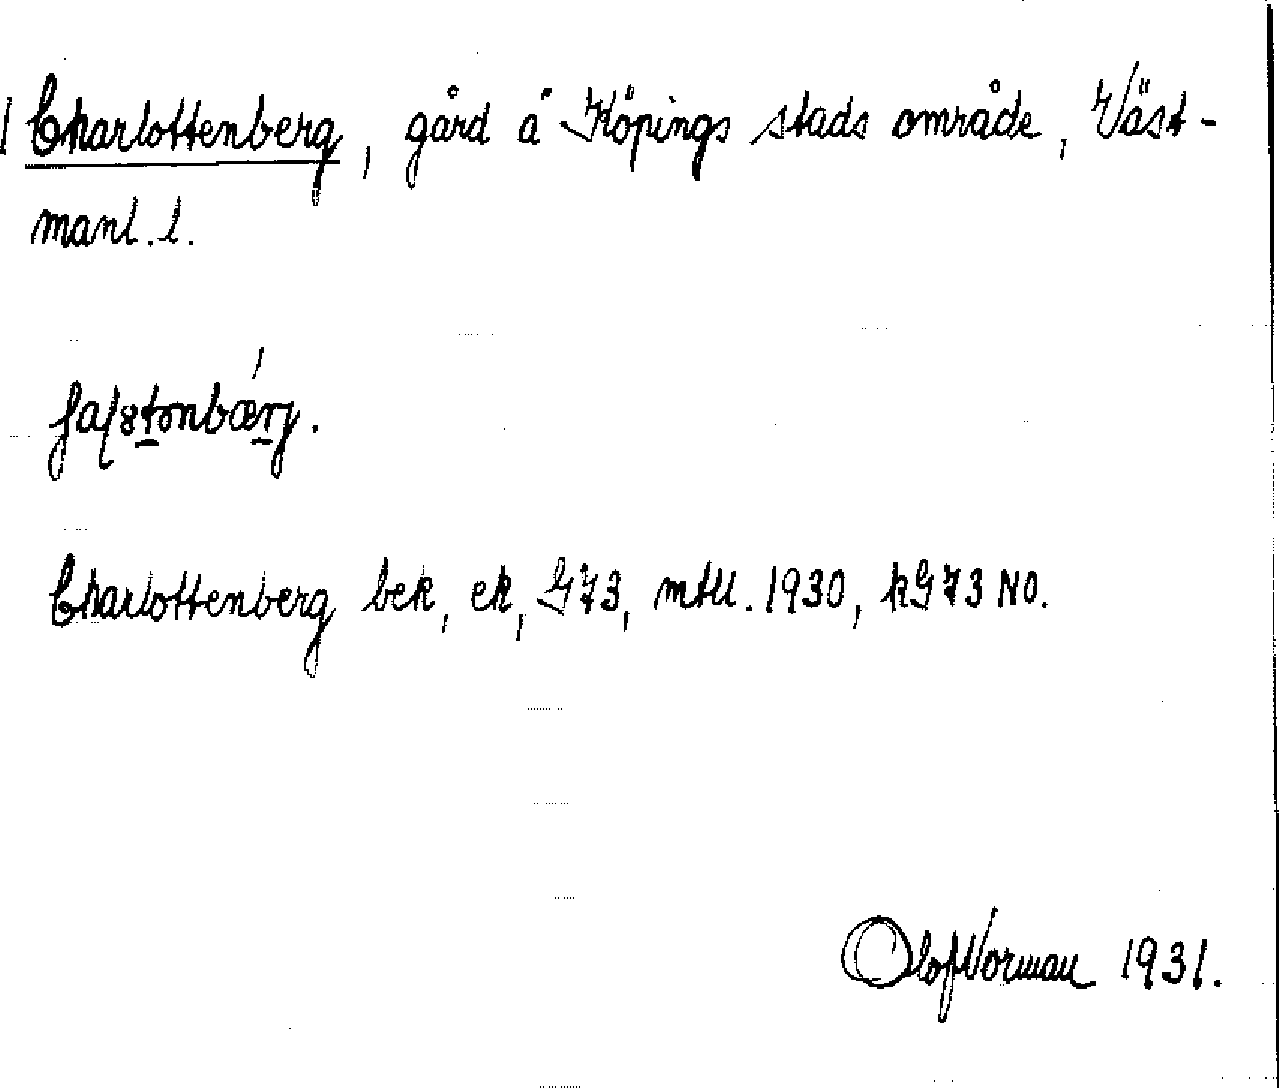 Charlottenberg, gård å Köpings stads område, Väst-
manl. l.
Charlottenberg bek, ek, G73, mtll. 1930, kG73 NO.
Olof Norman 1931.